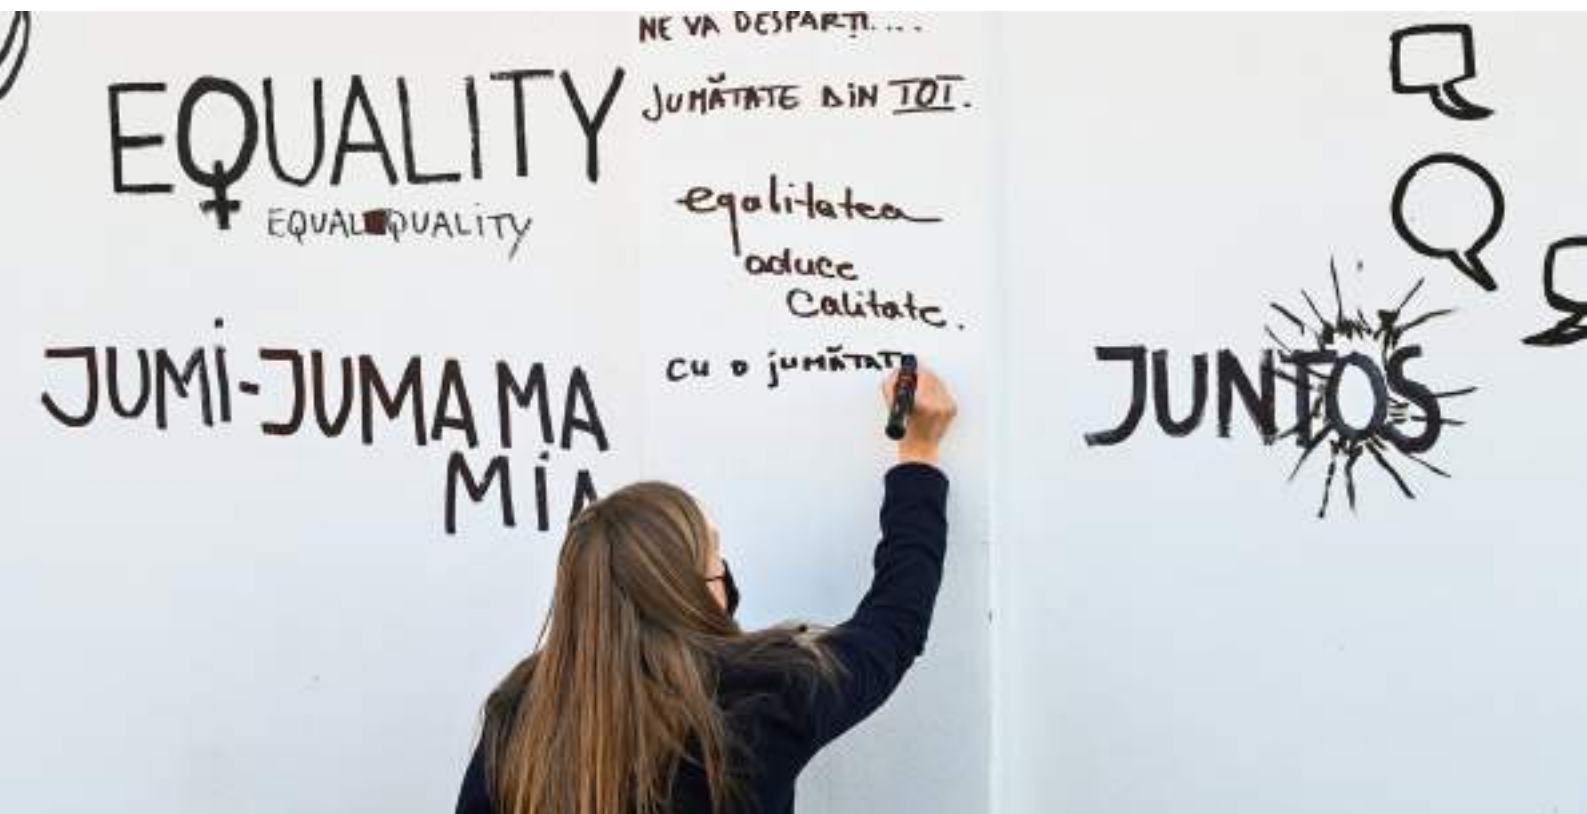 EQUALITY
EQUAL QUALITY
JUMI-JUMA MA
MIA
NE VA DESPĂRȚI....
JUMĂTATE DIN TOT.
egalitatea
aduce
Calitate.
CU O jUMĂTATE
JUNTOS